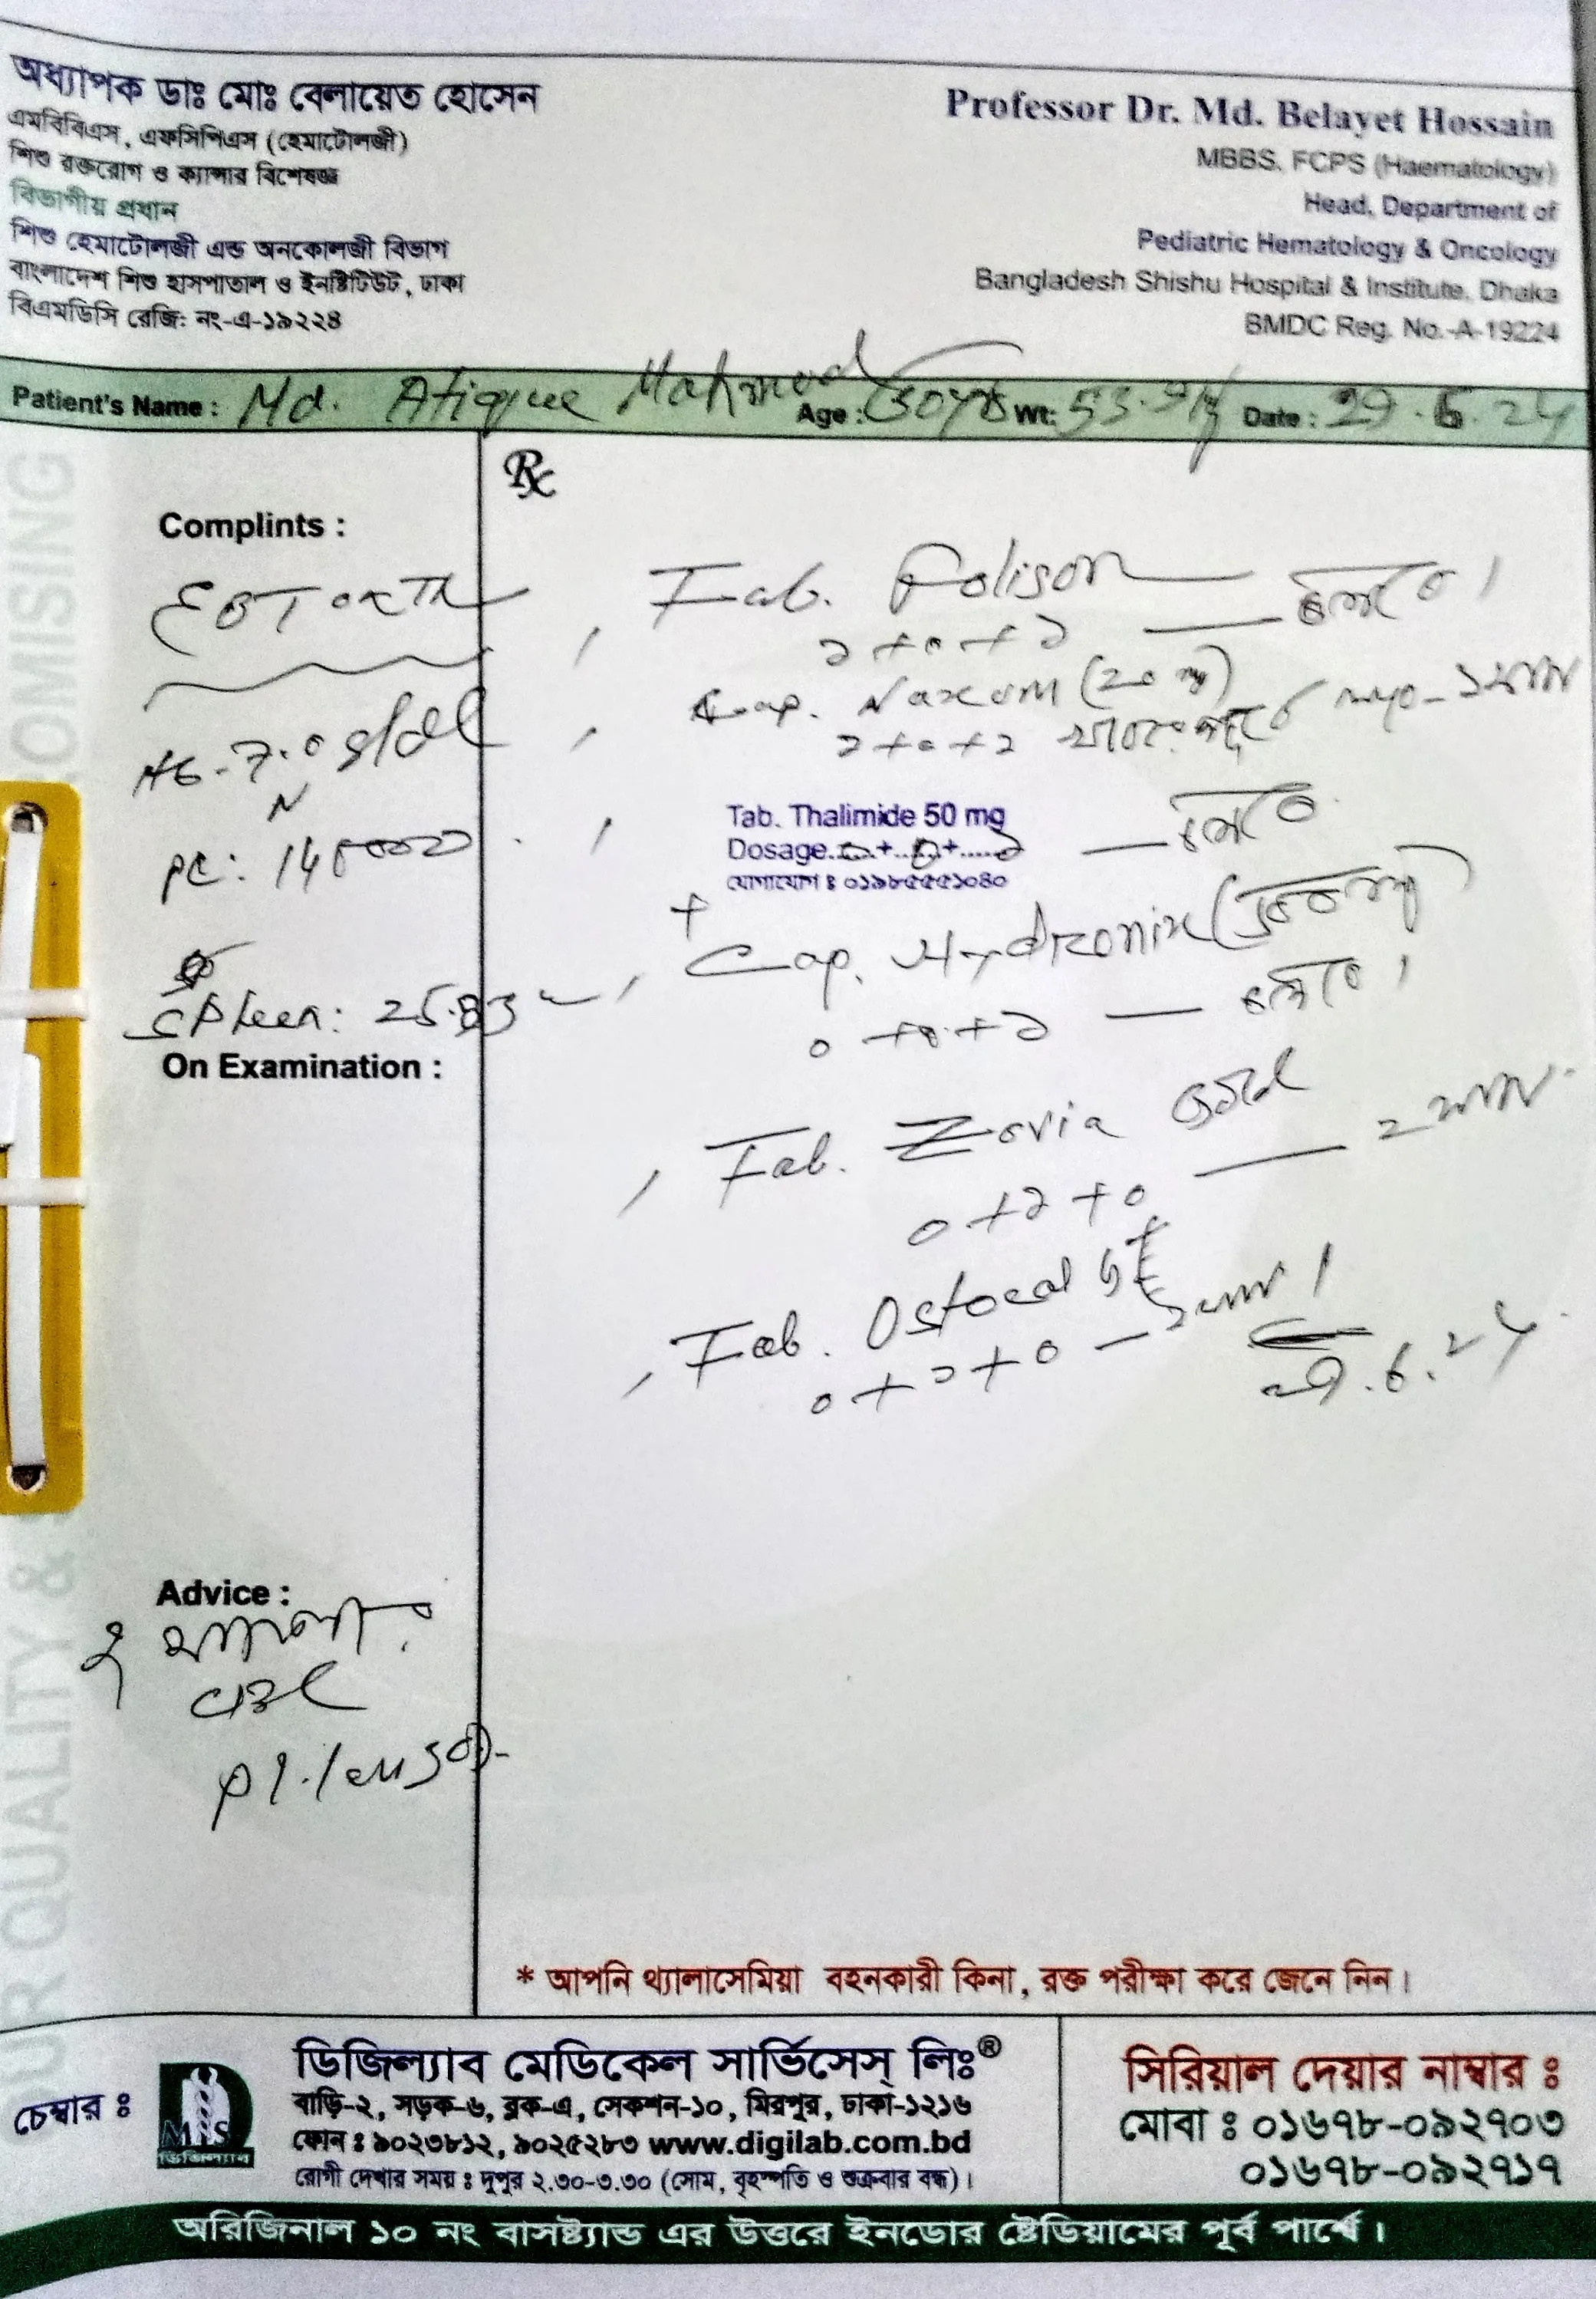 অধ্যাপক ডাঃ মোঃ বেলায়েত হোসেন
এমবিবিএস, এফসিপিএস (হেমাটোলজী)
শিশু রক্তরোগ ও ক্যান্সার বিশেষজ্ঞ
বিভাগীয় প্রধান
শিশু হেমাটোলজী এন্ড অনকোলজী বিভাগ
বাংলাদেশ শিশু হাসপাতাল ও ইনষ্টিটিউট, ঢাকা
বিএমডিসি রেজি: নং-এ-১৯২২৪
Professor Dr. Md. Belayet Hossain
MBBS, FCPS (Haematology)
Head, Department of
Pediatric Hematology & Oncology
Bangladesh Shishu Hospital & Institute, Dhaka
BMDC Reg. No.-A-19224
Patient's Name : Md. Atique Mahmud Age : 30yrs Wt: 53. Date : 29.6.24
Complints :
Hb-7.0 g/dl
PC:
Spleen: 25.83
On Examination :
Advice :
Rx
Tab. Folison
১+০+১
Cap. Naxum (20 mg)
১+০+১
Tab. Thalimide 50 mg
Dosage..০..+..০..+..১
যোগাযোগ ঃ ০১৯৮৫৫৫১০৪০
+
Cap. Hydronix
০+০+১
Tab. Zovia Gold
০+১+০
Tab. Ostocal
০+১+০
29.6.24
* আপনি থ্যালাসেমিয়া বহনকারী কিনা, রক্ত পরীক্ষা করে জেনে নিন।
চেম্বার ঃ
ডিজিল্যাব
ডিজিল্যাব মেডিকেল সার্ভিসেস্ লিঃ®
বাড়ি-২, সড়ক-৬, ব্লক-এ, সেকশন-১০, মিরপুর, ঢাকা-১২১৬
ফোন ঃ ৯০২৩৮১২, ৯০২৫২৮৩ www.digilab.com.bd
রোগী দেখার সময় ঃ দুপুর ২.৩০-৩.৩০ (সোম, বৃহস্পতি ও শুক্রবার বন্ধ)।
সিরিয়াল দেয়ার নাম্বার ঃ
মোবা ঃ ০১৬৭৮-০৯২৭০৩
০১৬৭৮-০৯২৭১৭
অরিজিনাল ১০ নং বাসষ্ট্যান্ড এর উত্তরে ইনডোর ষ্টেডিয়ামের পূর্ব পার্শ্বে।